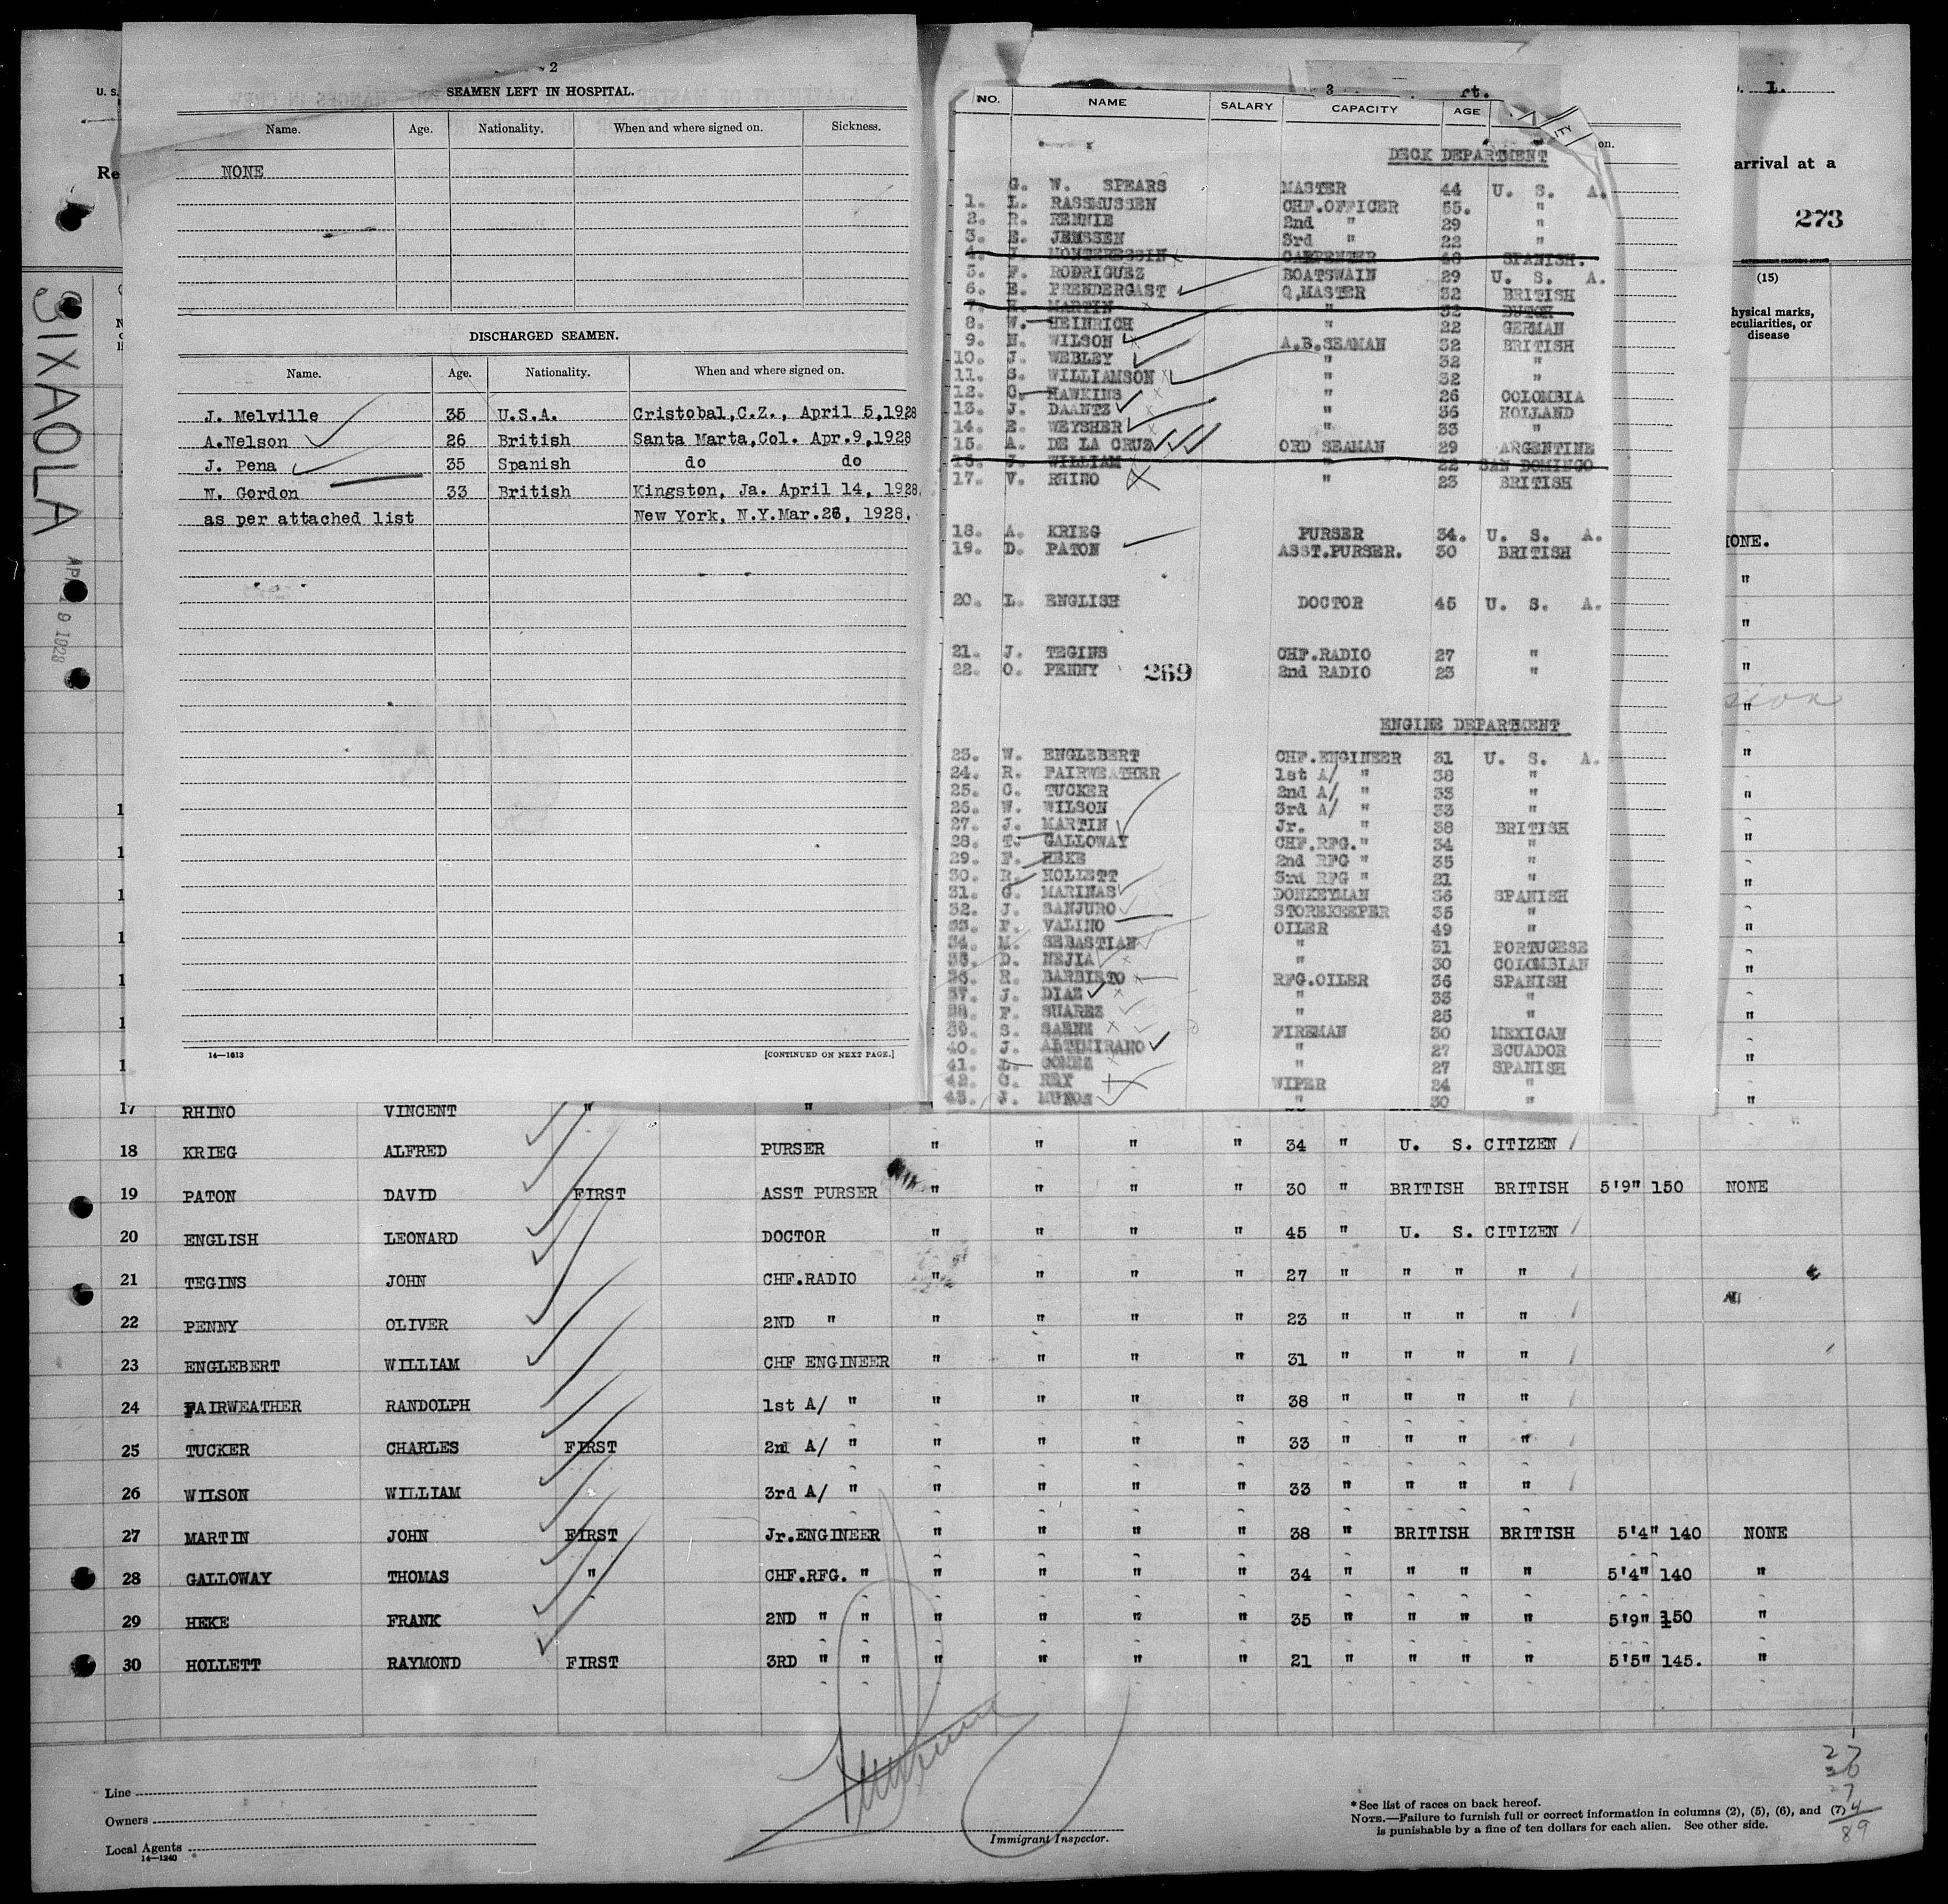 U. S.
Re
SIXAOLA
APR 19 1928
2
SEAMEN LEFT IN HOSPITAL.
Name. Age. Nationality. When and where signed on. Sickness.
NONE
DISCHARGED SEAMEN.
Name. Age. Nationality. When and where signed on.
J. Melville 35 U.S.A. Cristobal,C.Z., April 5,1928
A.Nelson 26 British Santa Marta,Col. Apr.9,1928
J. Pena 35 Spanish do do
N. Gordon 33 British Kingston, Ja. April 14, 1928.
as per attached list New York, N.Y.Mar.26, 1928.
14—1613 [CONTINUED ON NEXT PAGE.]
3 rt.
NO. NAME SALARY CAPACITY AGE ITY
on.
DECK DEPARTMENT
G. W. SPEARS MASTER 44 U. S. A.
1. L. RASSMUSSEN CHF.OFFICER 55. "
2. R. RENNIE 2nd " 29 "
3. E. JENSSEN 3rd " 22 "
4. J. MONTERESSIN CARPENTER 48 SPANISH.
5. F. RODRIGUEZ BOATSWAIN 29 U. S. A.
6. E. PRENDERGAST Q,MASTER 32 BRITISH
7. H. MARTIN " 32 DUTCH
8. W. HEINRICH " 22 GERMAN
9. N. WILSON A.B.SEAMAN 32 BRITISH
10. J. WEBLEY " 32 "
11. S. WILLIAMSON " 32 "
12. C. HAWKINS " 26 COLOMBIA
13. J. DAANTZ " 36 HOLLAND
14. E. WEYSHER " 33 "
15. A. DE LA CRUZ ORD SEAMAN 29 ARGENTINE
16. J. WILLIAM " 22 SAN DOMINGO
17. V. RHINO " 23 BRITISH
18. A. KRIEG PURSER 34. U. S. A.
19. D. PATON ASST.PURSER. 30 BRITISH
20. L. ENGLISH DOCTOR 45 U. S. A.
21. J. TEGINS CHF.RADIO 27 "
22. O. PENNY 269 2nd RADIO 23 "
ENGINE DEPARTMENT
23. W. ENGLEBERT CHF.ENGINEER 31 U. S. A.
24. R. FAIRWEATHER 1st A/ " 38 "
25. C. TUCKER 2nd A/ " 33 "
26. W. WILSON 3rd A/ " 33 "
27. J. MARTIN Jr. " 38 BRITISH
28. T. GALLOWAY CHF.RFG." 34 "
29. F. HEKE 2nd RFG " 35 "
30. R. HOLLETT 3rd RFG " 21 "
31. G. MARINAS DONKEYMAN 36 SPANISH
32. J. SANJURO STOREKEEPER 35 "
33. F. VALINO OILER 49 "
34. M. SEBASTIAN " 31 PORTUGESE
35. D. NEJIA " 30 COLOMBIAN
36. R. BARBIETO RFG.OILER 36 SPANISH
37. J. DIAZ " 33 "
38. F. SUAREZ " 25 "
39. S. SAENE FIREMAN 30 MEXICAN
40. J. ALTIMIRANO " 27 ECUADOR
41. L. GOMEZ " 27 SPANISH
42. C. REY WIPER 24 "
43. J. MUNOS " 30 "
1.
arrival at a
273
(15)
hysical marks,
eculiarities, or
disease
IONE.
17 RHINO VINCENT " "
18 KRIEG ALFRED PURSER " " " " 34 " U. S. CITIZEN
19 PATON DAVID FIRST ASST PURSER " " " " 30 " BRITISH BRITISH 5'9" 150 NONE
20 ENGLISH LEONARD DOCTOR " " " " 45 " U. S. CITIZEN
21 TEGINS JOHN CHF.RADIO " " " " 27 " " " "
22 PENNY OLIVER 2ND " " " " " 23 " " " "
23 ENGLEBERT WILLIAM CHF ENGINEER " " " " 31 " " " "
24 FAIRWEATHER RANDOLPH 1st A/ " " " " " 38 " " " "
25 TUCKER CHARLES FIRST 2nd A/ " " " " " 33 " " " "
26 WILSON WILLIAM 3rd A/ " " " " " 33 " " " "
27 MARTIN JOHN FIRST Jr.ENGINEER " " " " 38 " BRITISH BRITISH 5'4" 140 NONE
28 GALLOWAY THOMAS " CHF.RFG. " " " " " 34 " " " " 5'4" 140 "
29 HEKE FRANK 2ND " " " " " " 35 " " " " 5'9" 150 "
30 HOLLETT RAYMOND FIRST 3RD " " " " " " 21 " " " " 5'5" 145. "
Line
Owners
Local Agents
14—1240
Immigrant Inspector.
* See list of races on back hereof.
NOTE.—Failure to furnish full or correct information in columns (2), (5), (6), and (7)
is punishable by a fine of ten dollars for each alien. See other side.
27
4
89